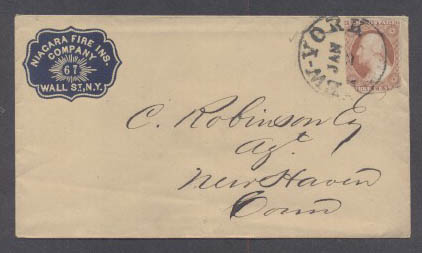 NIAGARA FIRE INS.
COMPANY
67
WALL ST. N.Y.
NEW-YORK
JAN
C. Robinson Esq
Agt.
New Haven
Conn